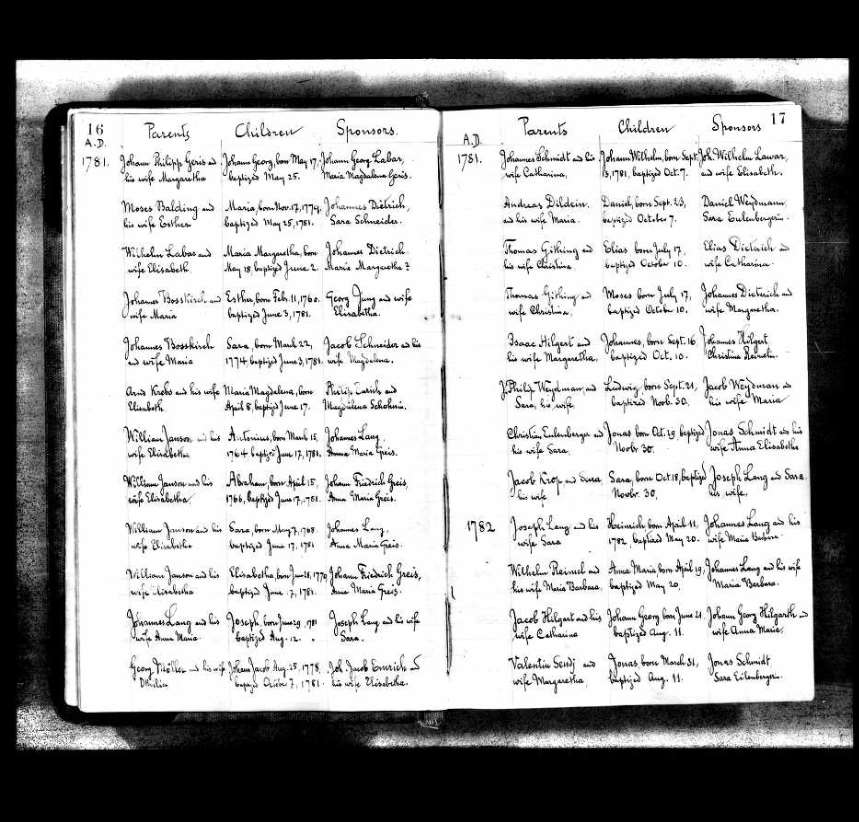 16
Parents Children Sponsors.
A.D.
1781. Johann Philipp Geris and Johann Georg, born May 17, Johann Georg Labar,
his wife Margaretha baptized May 25. Maria Magdalena Geris.
Moses Balding and Maria, born Nov. 17, 1774, Johannes Dietrich,
his wife Esther baptized May 25, 1781. Sara Schneider.
Wilhelm Labar and Maria Margaretha, born Johannes Dietrich
wife Elisabeth May 18, baptized June 2. Maria Margaretha ?
Johannes Bosskirsch and Esther, born Febr. 11, 1760. Georg Jung and wife
wife Maria baptized June 3, 1781. Elisabetha.
Johannes Bosskirsch Sara, born March 22, Jacob Schneider and his
and wife Maria 1774 baptized June 3, 1781. wife Magdalena.
Krebs and his wife Maria Magdalena, born Philip and
Elisabeth April 8, baptized June 17. Magdalena
William Janson and his Antonius, born March 15, Johannes Lang
wife Elisabetha 1764 baptized June 17, 1781. Anna Maria Greis.
William Janson and his Abraham, born April 15, Johann Friedrich Greis,
wife Elisabetha 1766, baptized June 17, 1781. Anna Maria Greis.
William Janson and his Sara, born May 7, 1768 Johannes Lang,
wife Elisabetha baptized June 17, 1781 Anna Maria Greis.
William Janson and his Elisabetha, born Johann Friedrich Greis,
wife Elisabetha baptized June 17, 1781. Anna Maria Greis.
Johannes Lang and his Joseph, born June 29, 1781 Joseph Lang and his wife
wife Anna Maria baptized Aug. 12. Sara.
Georg Müller and his wife Johann Jacob Aug. 25, 1778, Joh. Jacob Emrich and
baptized October 7, 1781. his wife Elisabetha.
17
Parents Children Sponsors
A.D.
1781. Johannes Schmidt and his Johann Wilhelm, born Sept. Joh. Wilhelm Lawar,
wife Catharina, 13, 1781, baptized Oct. 7. and wife Elisabeth.
Andreas Dildein Daniel, born Sept. 23, Daniel Weydmann
and his wife Maria. baptized October 7. Sara Eulenbergerin.
Thomas Githing and Elias born July 17, Elias Dietrich and
his wife Christina baptized October 10. wife Catharina.
Thomas Githing and Moses born July 17, Johannes Dietrich and
wife Christina, baptized October 10. wife Margaretha.
Isaac Hilgert and Johannes, born Sept. 16 Johannes Hilgert
his wife Margaretha. baptized Oct. 10. Christina
J. Philip Weydman, and Ludwig, born Sept. 21, Jacob Weydman and
Sara, his wife baptized Novb. 30. his wife Maria
Christian Eulenberger and Jonas born Oct. 19 baptized Jonas Schmidt and his
wife Sara Novbr. 30. wife Anna Elisabetha
Jacob Krop and Sara Sara, born Oct 18, baptized Joseph Lang and Sara
his wife Novbr. 30, his wife.
1782 Joseph Lang and his Heinrich, born April 11, Johannes Lang and his
wife Sara 1782, baptized May 20. wife Maria Barbara.
Wilhelm Reimel and Anna Maria born April 19, Johannes Lang and his wife
his wife Maria Barbara. baptized May 20, Maria Barbara.
Jacob Hilgart and his Johann Georg born June 21, Johann Georg Hilgarth and
wife Catharina baptized Aug. 11. wife Anna Maria.
Valentin and Jonas born March 31, Jonas Schmidt,
wife Margaretha baptized Aug. 11. Sara Eilenbergerin.